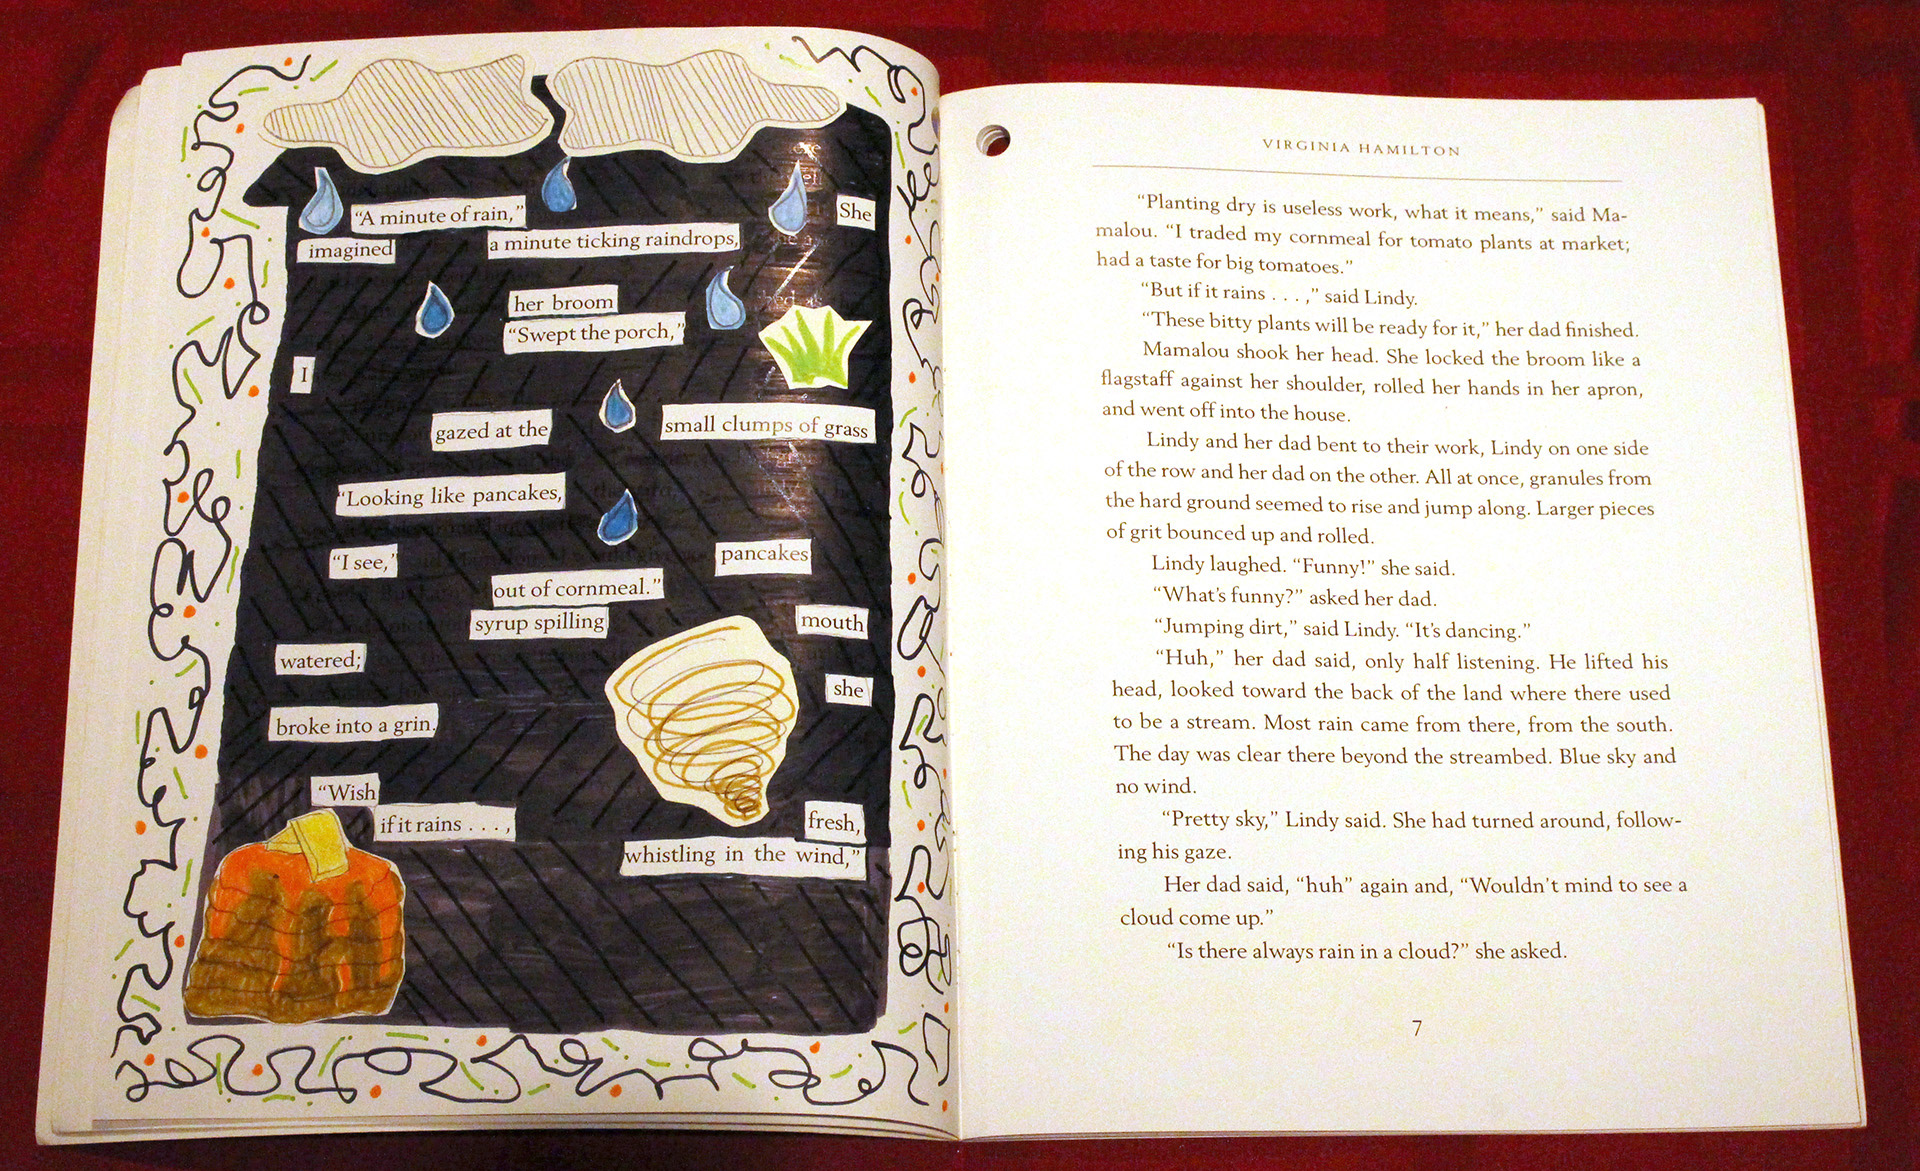 "A minute of rain," She
imagined a minute ticking raindrops,
her broom
"Swept the porch,"
I
gazed at the small clumps of grass
"Looking like pancakes,
"I see," pancakes
out of cornmeal."
syrup spilling mouth
watered;
she
broke into a grin.
"Wish
if it rains . . . , fresh,
whistling in the wind,"
VIRGINIA HAMILTON
"Planting dry is useless work, what it means," said Ma-
malou. "I traded my cornmeal for tomato plants at market;
had a taste for big tomatoes."
"But if it rains . . . ," said Lindy.
"These bitty plants will be ready for it," her dad finished.
Mamalou shook her head. She locked the broom like a
flagstaff against her shoulder, rolled her hands in her apron,
and went off into the house.
Lindy and her dad bent to their work, Lindy on one side
of the row and her dad on the other. All at once, granules from
the hard ground seemed to rise and jump along. Larger pieces
of grit bounced up and rolled.
Lindy laughed. "Funny!" she said.
"What's funny?" asked her dad.
"Jumping dirt," said Lindy. "It's dancing."
"Huh," her dad said, only half listening. He lifted his
head, looked toward the back of the land where there used
to be a stream. Most rain came from there, from the south.
The day was clear there beyond the streambed. Blue sky and
no wind.
"Pretty sky," Lindy said. She had turned around, follow-
ing his gaze.
Her dad said, "huh" again and, "Wouldn't mind to see a
cloud come up."
"Is there always rain in a cloud?" she asked.
7